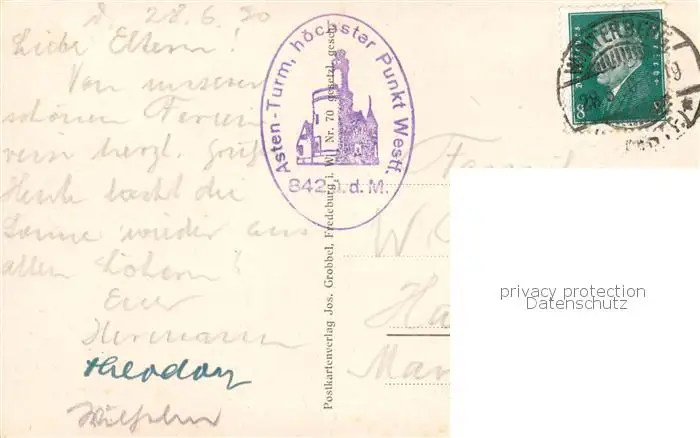 d. 28.6.30
Liebe Eltern!
Von unserer
schönen Ferien
reise herzl. Grüße
Heute lacht die
Sonne wieder aus
allen Löchern!
Euer
Hermann
Theodor
Wilhelm
Asten-Turm, höchster Punkt Westf.
842 ü. d. M.
Postkartenverlag Jos. Grobbel, Fredeburg i. W. Nr. 70 gesetzl. gesch.
WINTERBERG
8
Famil
W.
Ha
Mar
privacy protection
Datenschutz